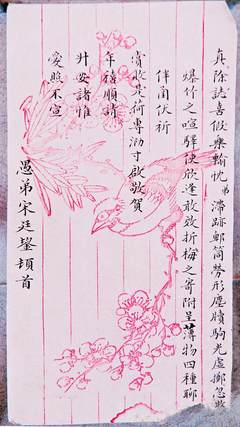 真除誌喜假樂輸忱弟滯跡郵筒勞形塵牘駒光虛擲忽
爆竹之喧驛使欣逢敢效折梅之寄附呈薄物四種聊
伴函伏祈
賞收是荷專泐寸啟敬賀
年禧順請
升安諸惟
愛照不宣
愚弟宋廷頓首